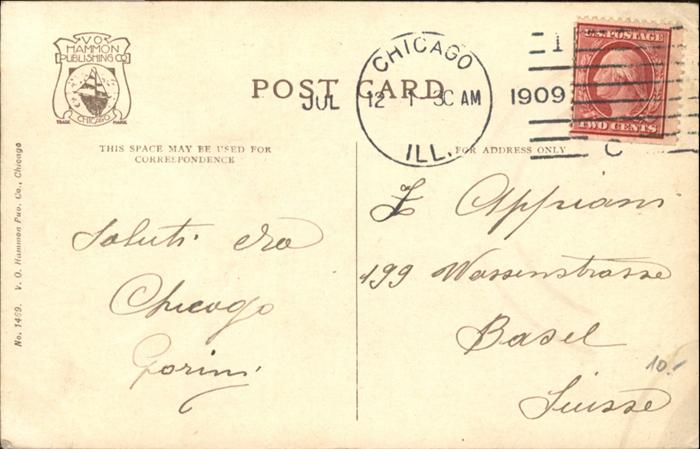 V.O.
HAMMON
PUBLISHING CO
TRADE CHICAGO MARK
POST CARD
CHICAGO
JUL 12 1 30 AM 1909
ILL.
1
C
U.S. POSTAGE
TWO CENTS
THIS SPACE MAY BE USED FOR
CORRESPONDENCE
FOR ADDRESS ONLY
No. 1469. V. O. Hammon Pub. Co., Chicago
Saluti da
Chicago
Gorini
Appiani
199 Wassenstrasse
Basel
Suisse
10.-